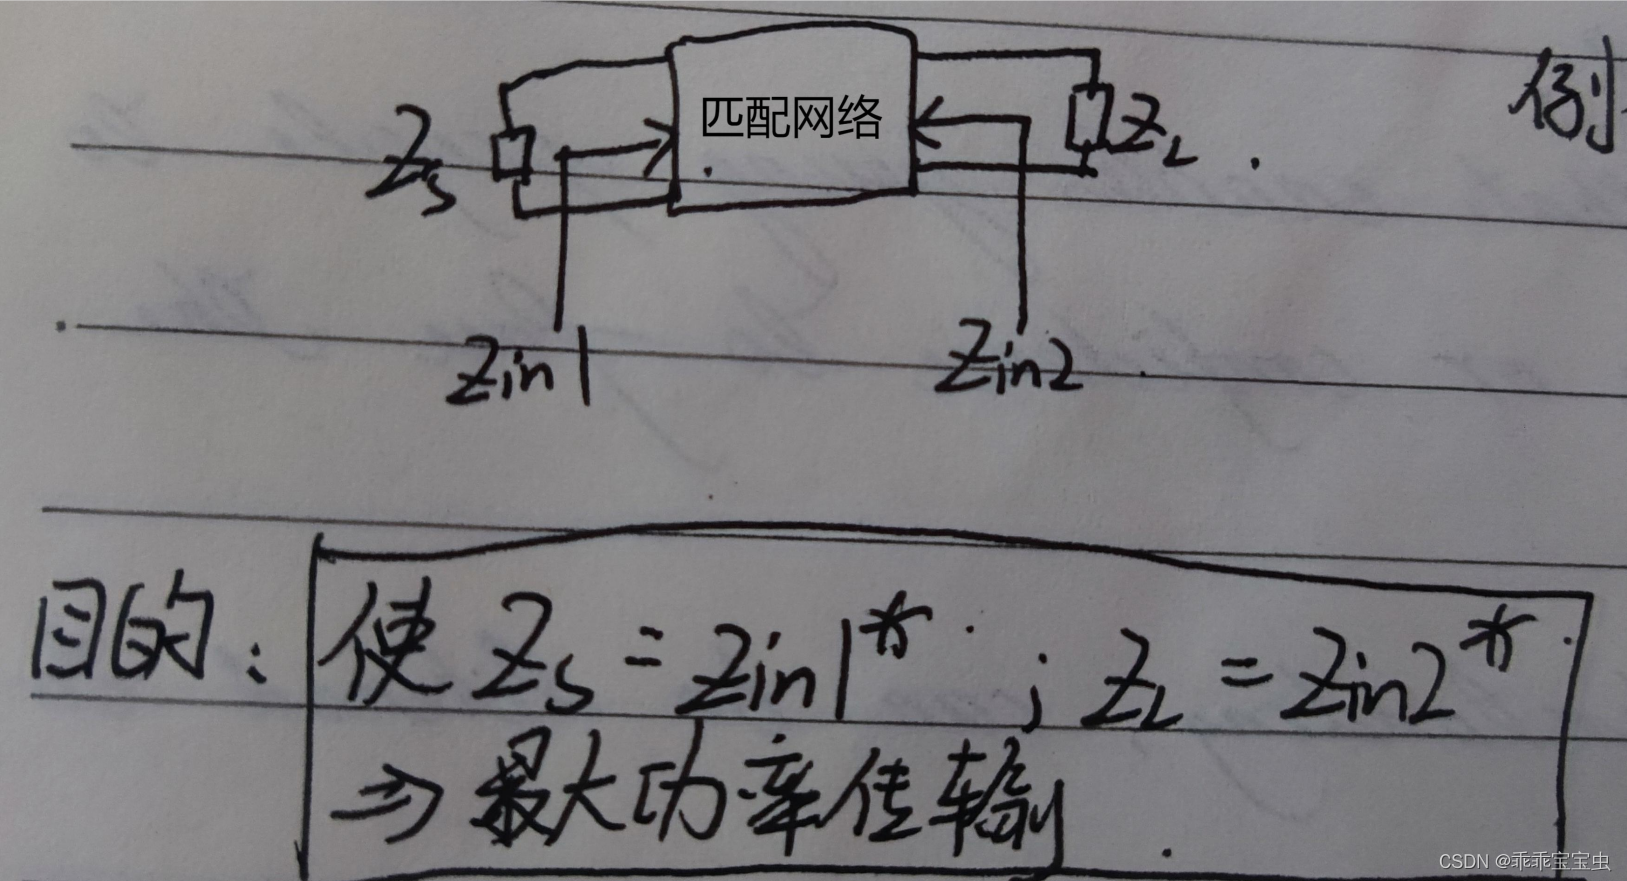 例
匹配网络
Zs
ZL
Zin1
Zin2
目的: 使 Zs = Zin1* ; ZL = Zin2*
⇒ 最大功率传输
CSDN @乖乖宝宝虫